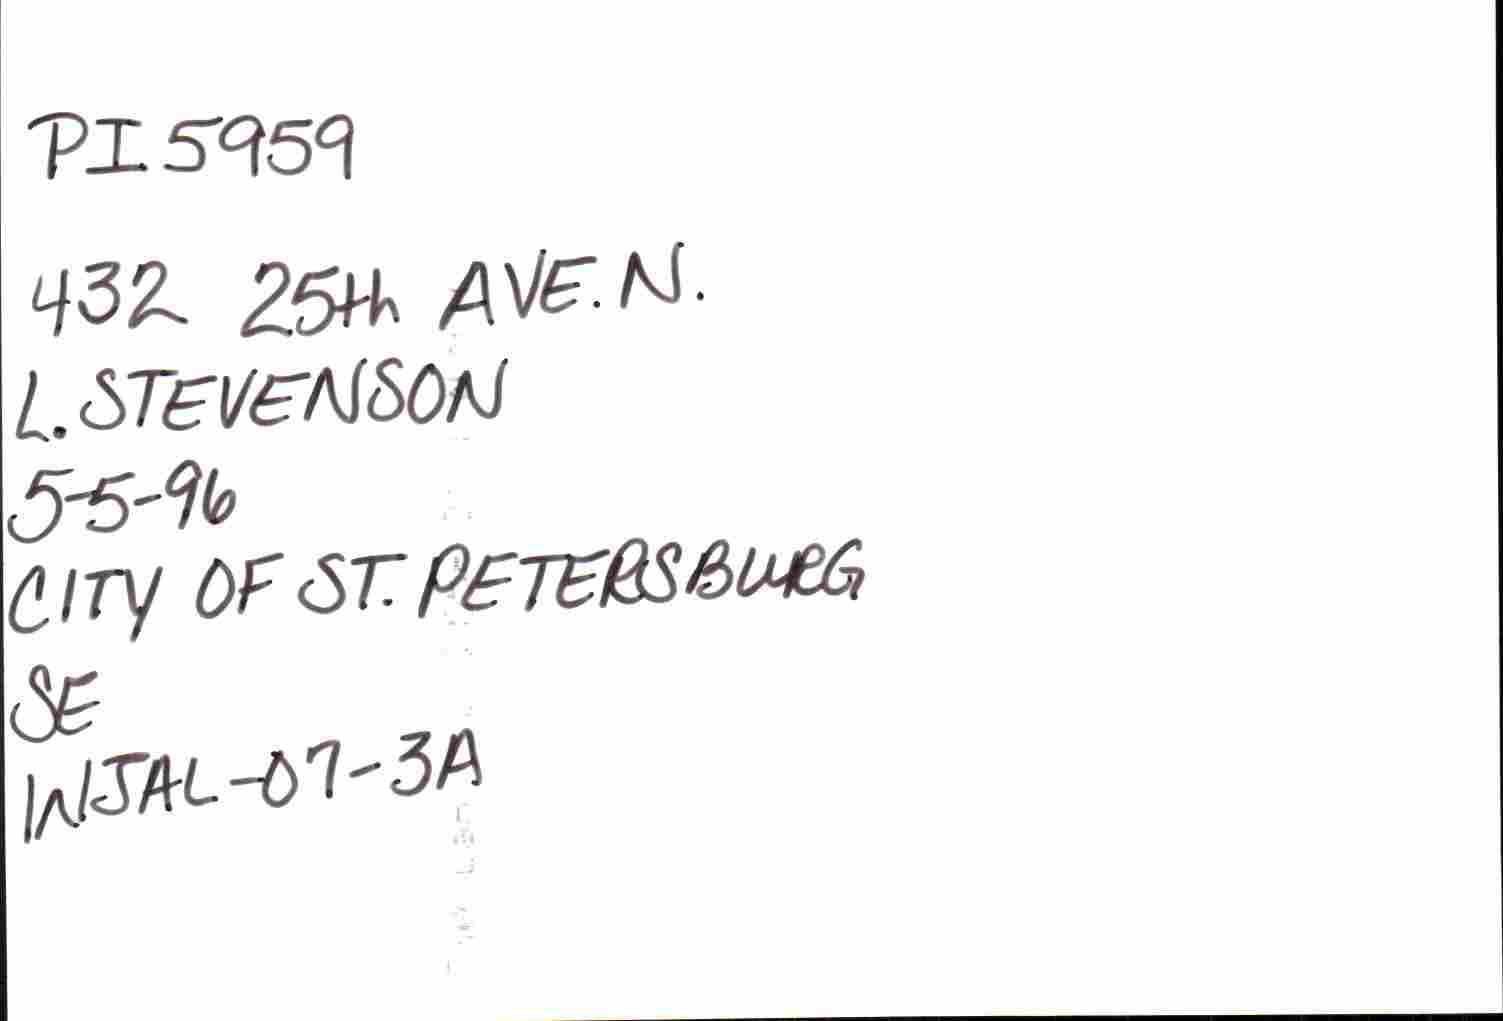 PI 5959
432 25th AVE. N.
L. STEVENSON
5-5-96
CITY OF ST. PETERSBURG
SE
INJAL-07-3A